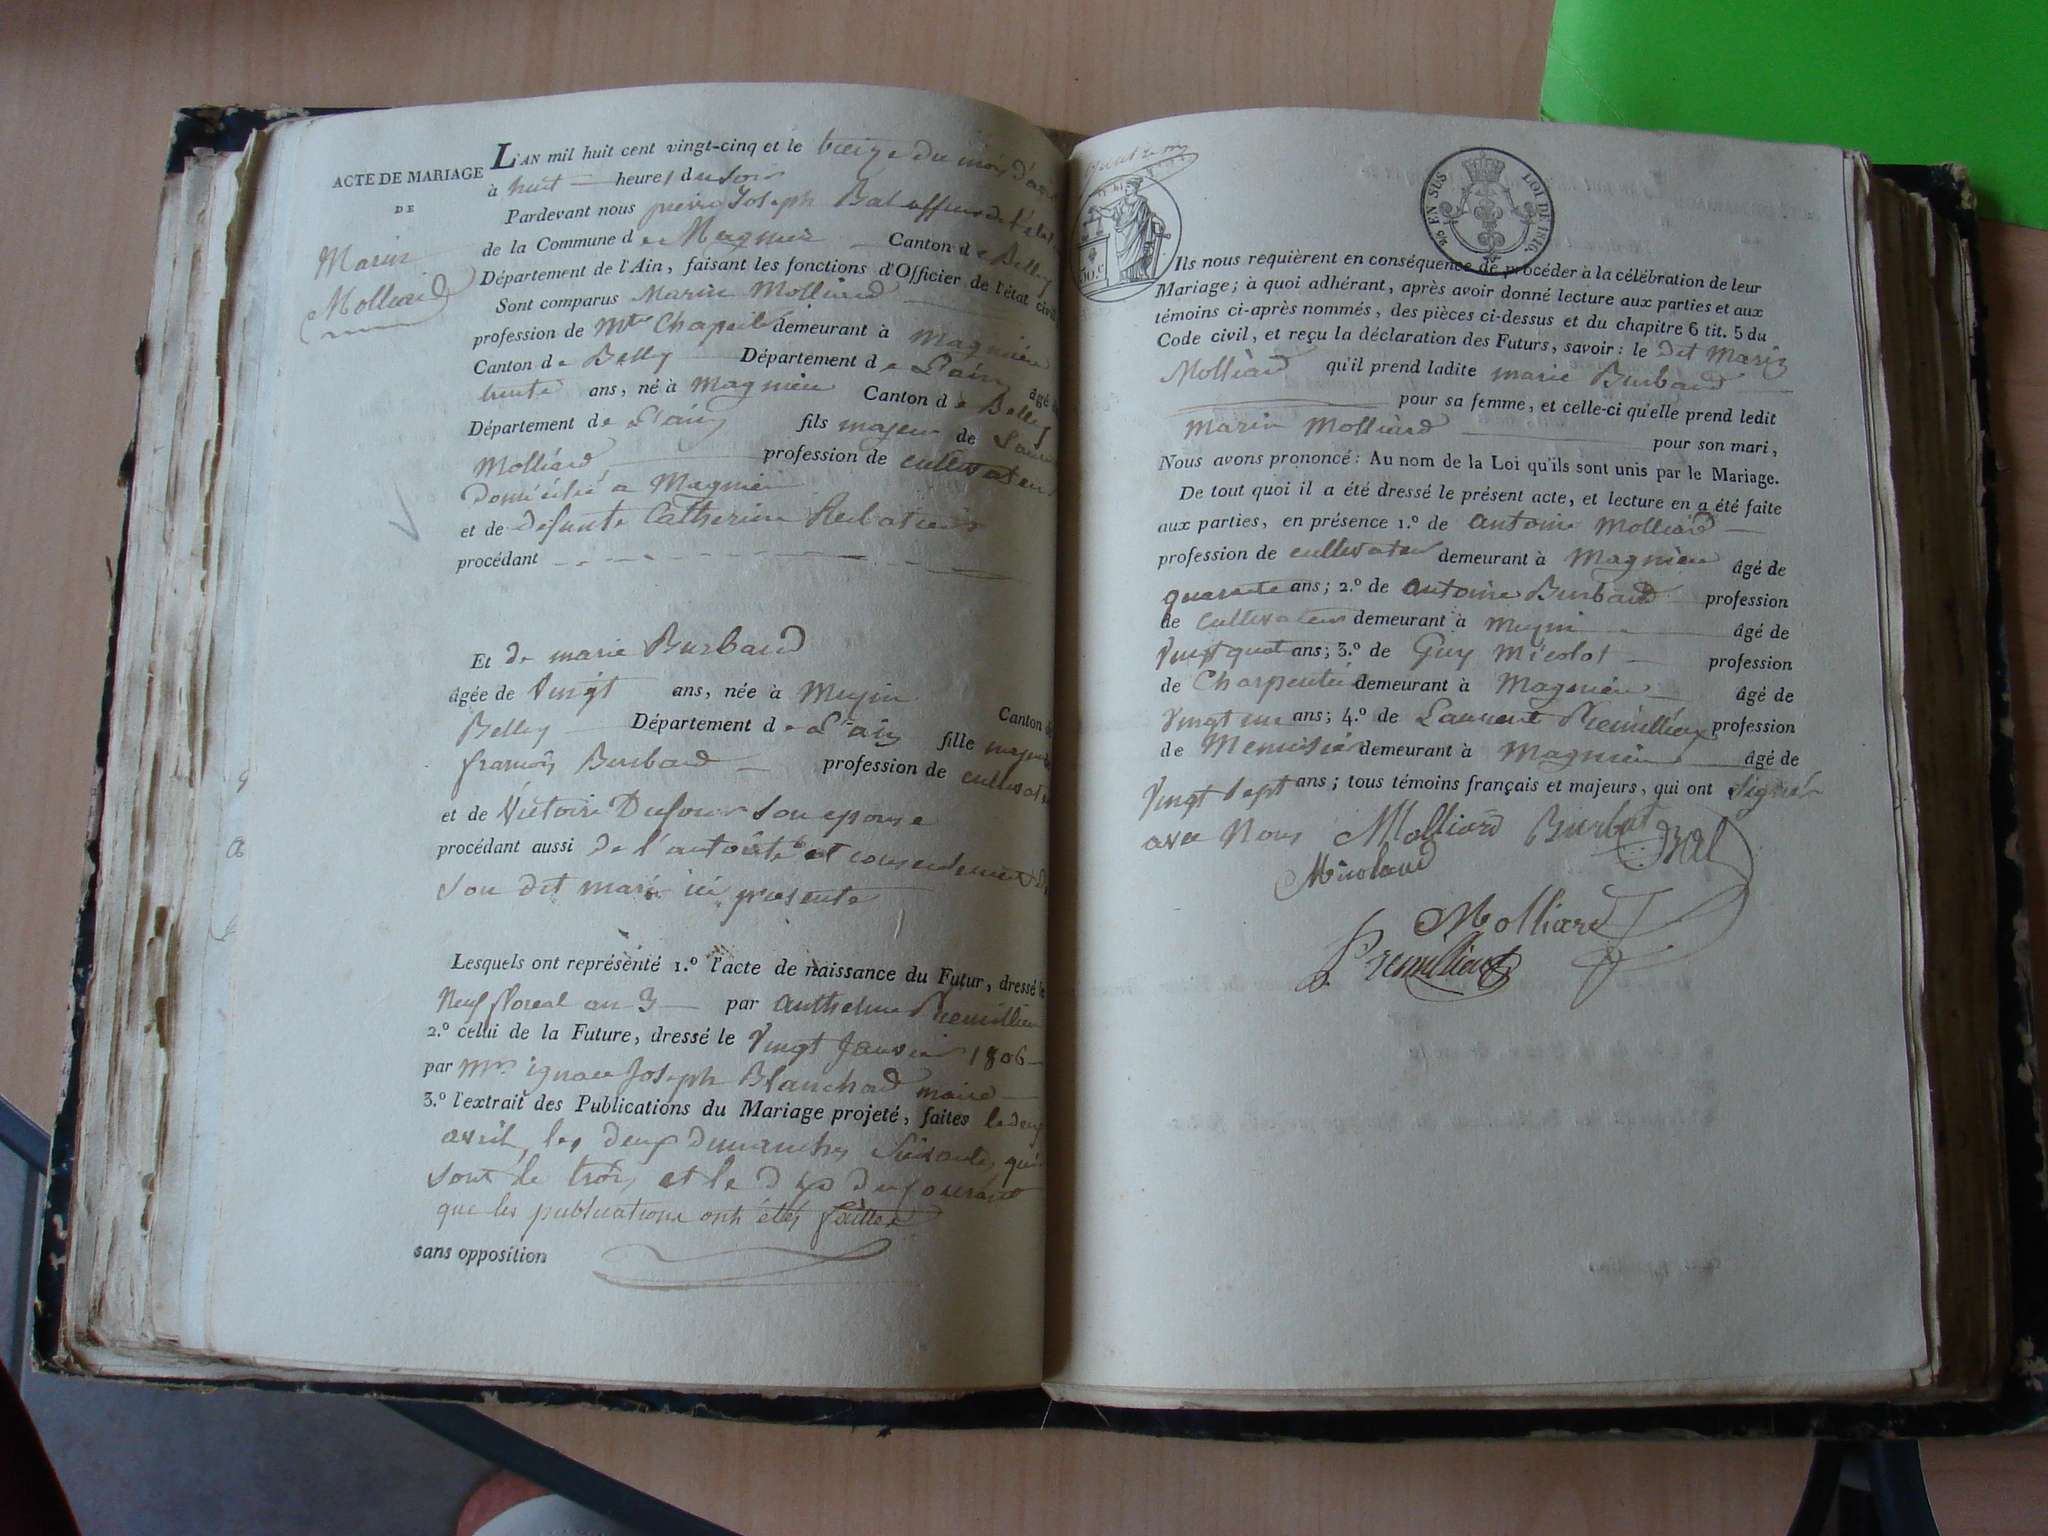 ACTE DE MARIAGE
DE
Marin
Molliard
L'AN mil huit cent vingt-cinq et le treize du mois d'avril
à huit heures du soir
Pardevant nous pierre Joseph Bal officier de l'état
de la Commune de Magnieu Canton de Belley
Département de l'Ain, faisant les fonctions d'Officier de l'état civil
Sont comparus Marin Molliard
profession de demeurant à Magnieu
Canton de Belley Département de L'ain âgé de
trente ans, né à Magnieu Canton de Belley
Département de L'ain fils majeur de
Molliard profession de cultivateur
Domicilié a Magnieu
et de defunte Catherine
procédant
Et de marie Burbaud
âgée de Vingt ans, née à Muzin Canton de
Belley Département de L'ain fille
françois Burbaud profession de
et de Victoire Dufour son epouse
procédant aussi de l'autorité et consentement de
son dit mari ici présente
Lesquels ont représenté 1.º l'acte de naissance du Futur, dressé le
Neuf floreal an 3 par anthelme Premillieu
2.º celui de la Future, dressé le Vingt Janvier 1806
par Mr ignace Joseph Blanchard maire
3.º l'extrait des Publications du Mariage projeté, faites
avril, les deux dimanches suivants, qui
sont le trois et le dix du courant
que les publications ont étés faittes
sans opposition
EN SUS
LOI DE 1816.
50.c
Ils nous requièrent en conséquence de procéder à la célébration de leur
Mariage; à quoi adhérant, après avoir donné lecture aux parties et aux
témoins ci-après nommés, des pièces ci-dessus et du chapitre 6 tit. 5 du
Code civil, et reçu la déclaration des Futurs, savoir: le dit Marin
Molliard qu'il prend ladite marie Burbaud
pour sa femme, et celle-ci qu'elle prend ledit
Marin Molliard pour son mari,
Nous avons prononcé: Au nom de la Loi qu'ils sont unis par le Mariage.
De tout quoi il a été dressé le présent acte, et lecture en a été faite
aux parties, en présence 1.º de antoine Molliard
profession de cultivateur demeurant à Magnieu âgé de
quarante ans; 2.º de antoine Burbaud profession
de cultivateur demeurant à Muzin âgé de
Vingt quat ans; 3.º de Guy Micolot profession
de Charpentié demeurant à Magnieu âgé de
Vingt un ans; 4.º de Laurent Premillieux profession
de Menuisié demeurant à Magnieu âgé de
Vingt Sept ans; tous témoins français et majeurs, qui ont signés
avec Nous Molliard Burbet Bal
Micolaud
Molliard
Premillieux